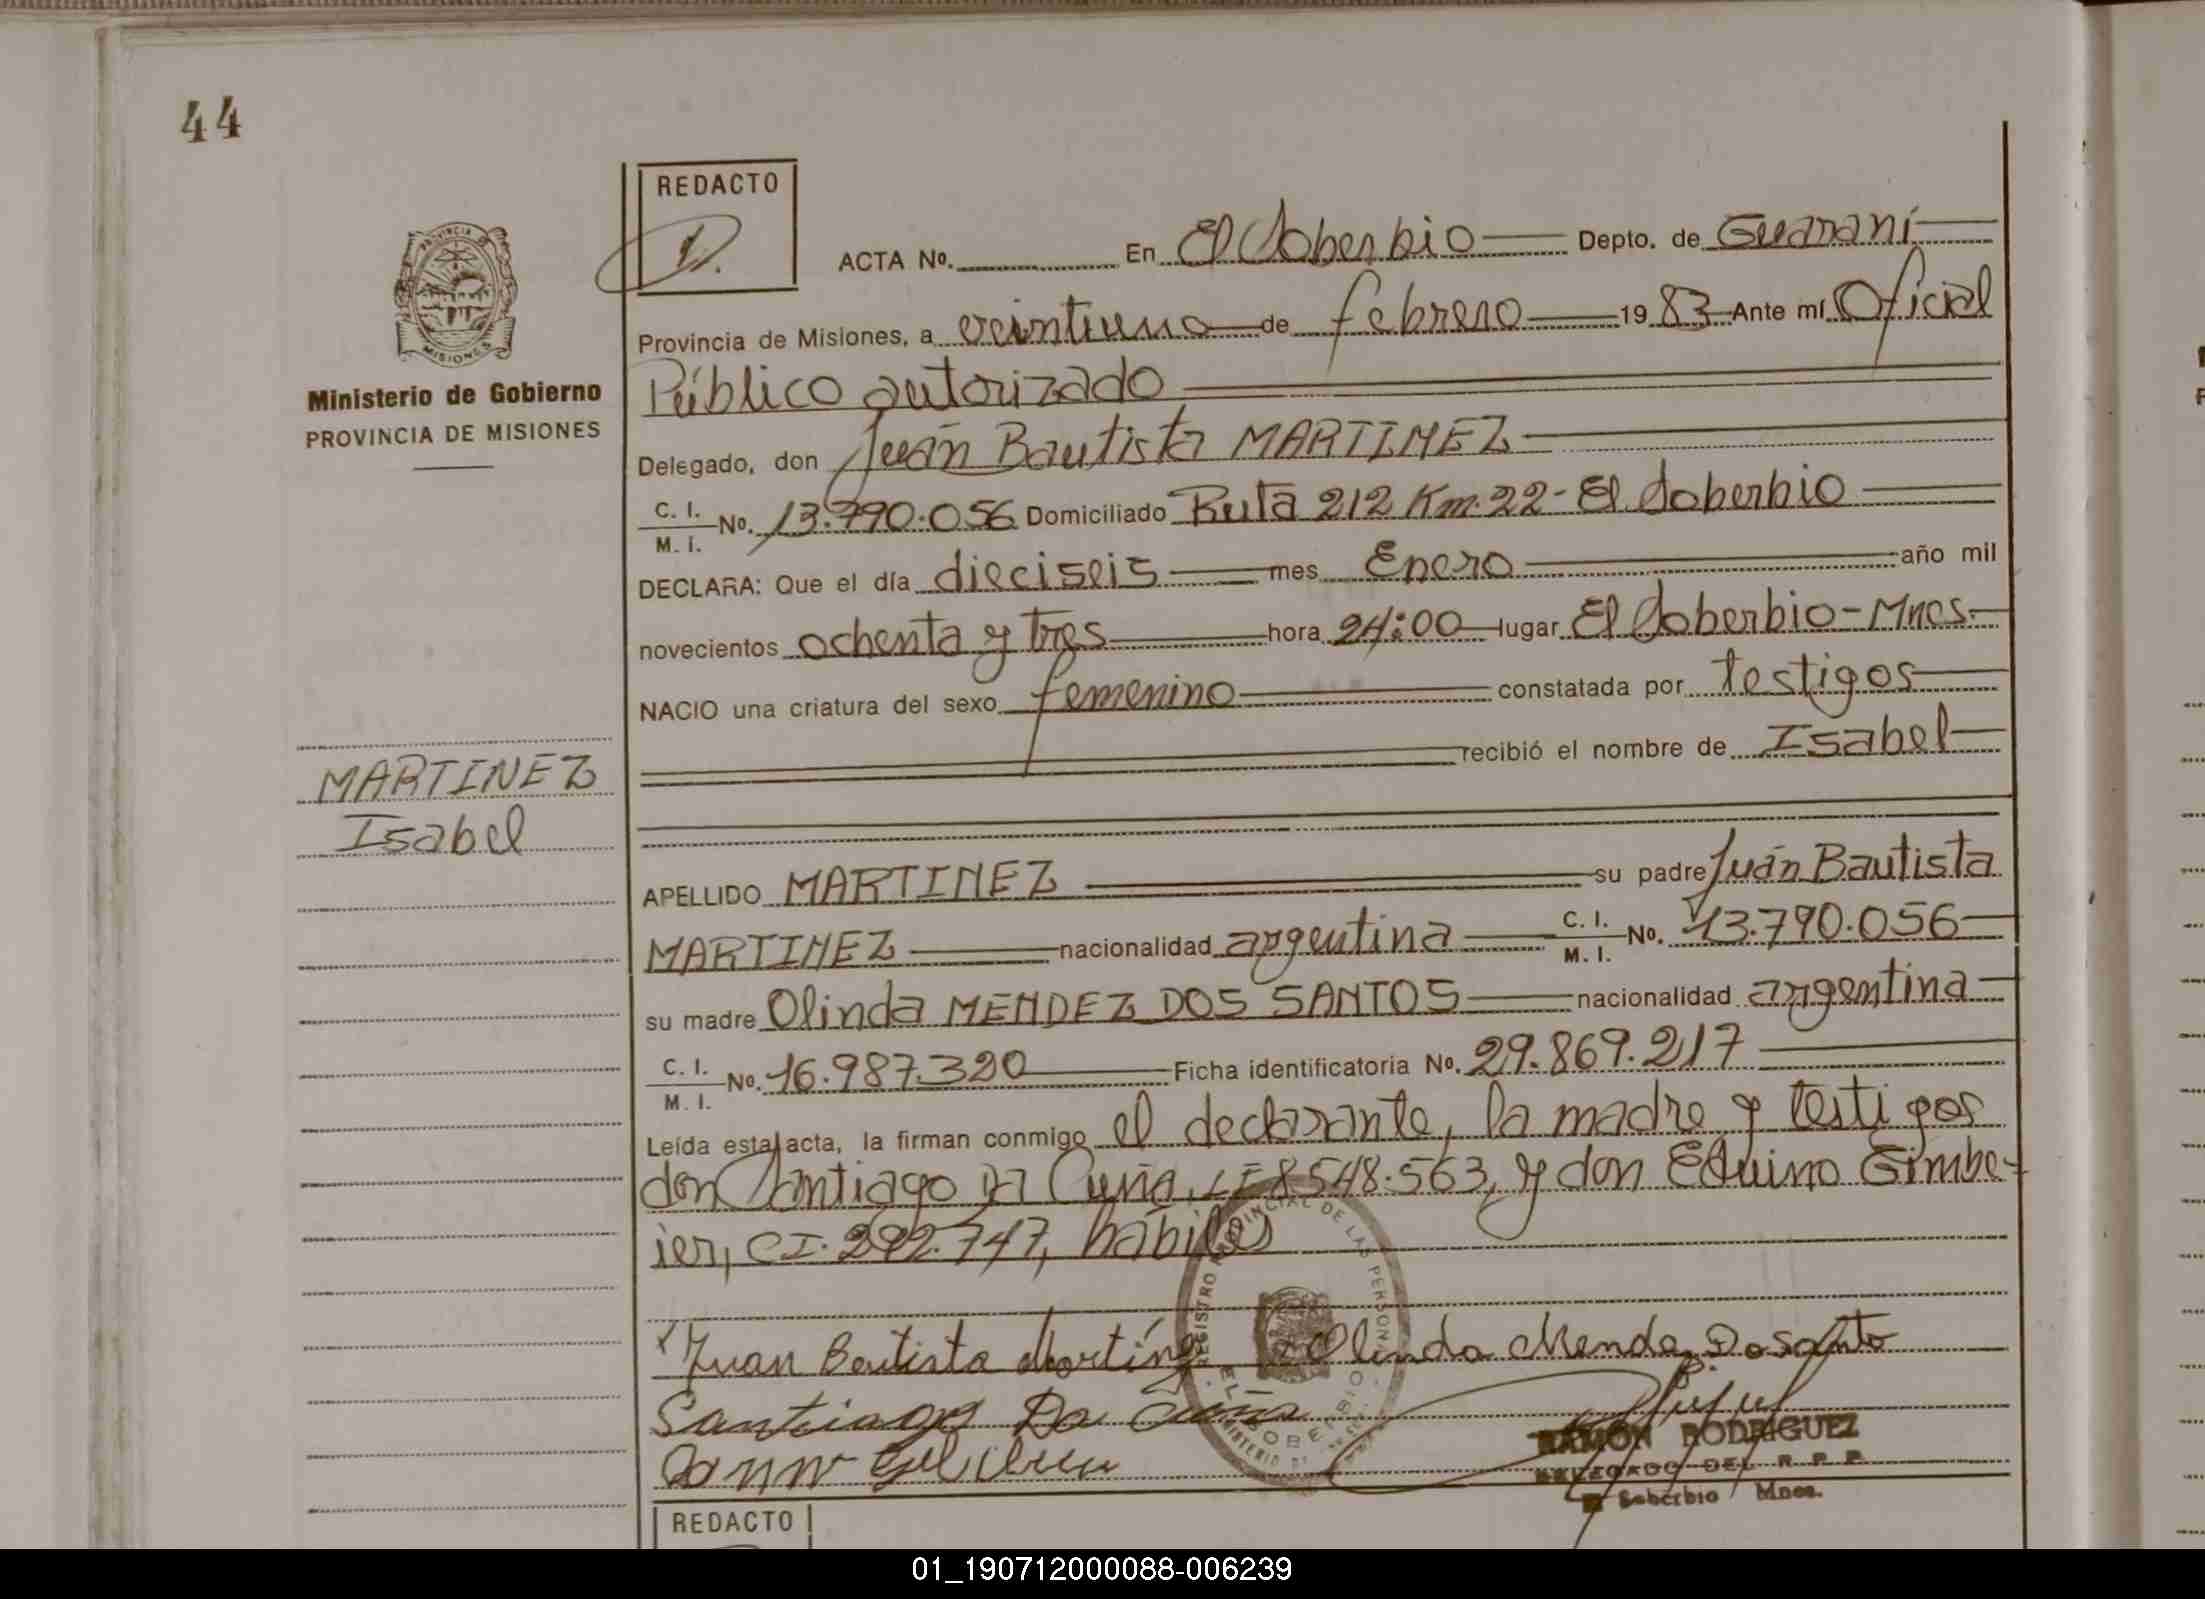 44
REDACTO
ACTA Nº. En El Soberbio Depto. de Guaraní
Provincia de Misiones, a veintiuno de febrero 1983 Ante mí Oficial
Público autorizado
Delegado, don Juan Bautista MARTINEZ
C. I.
M. I. Nº. 13.790.056 Domiciliado Ruta 212 Km. 22 - El Soberbio
DECLARA: Que el día dieciseis mes Enero año mil
novecientos ochenta y tres hora 24:00 lugar El Soberbio - Mnes.
NACIO una criatura del sexo femenino constatada por testigos
recibió el nombre de Isabel
APELLIDO MARTINEZ su padre Juán Bautista
MARTINEZ nacionalidad argentina C. I. M. I. Nº. 13.790.056
su madre Olinda MENDEZ DOS SANTOS nacionalidad argentina
C. I.
M. I. Nº. 16.987.320 Ficha identificatoria Nº. 29.869.217
Leída esta acta, la firman conmigo el declarante, la madre y testigos
don Santiago Da Cuña, LE 8.548.563, y don Eduino Gimbe-
ier, CI. 292.747, hábiles
Juan Bautista Martínez Olinda Mendez Dosanto
Santiago Da Cuña
RAMON RODRIGUEZ
DELEGADO DEL R P P
El Soberbio Mnes.
REGISTRO PROVINCIAL DE LAS PERSONAS
EL SOBERBIO
REDACTO
PROVINCIA DE
MISIONES
Ministerio de Gobierno
PROVINCIA DE MISIONES
MARTINEZ
Isabel
01_190712000088-006239